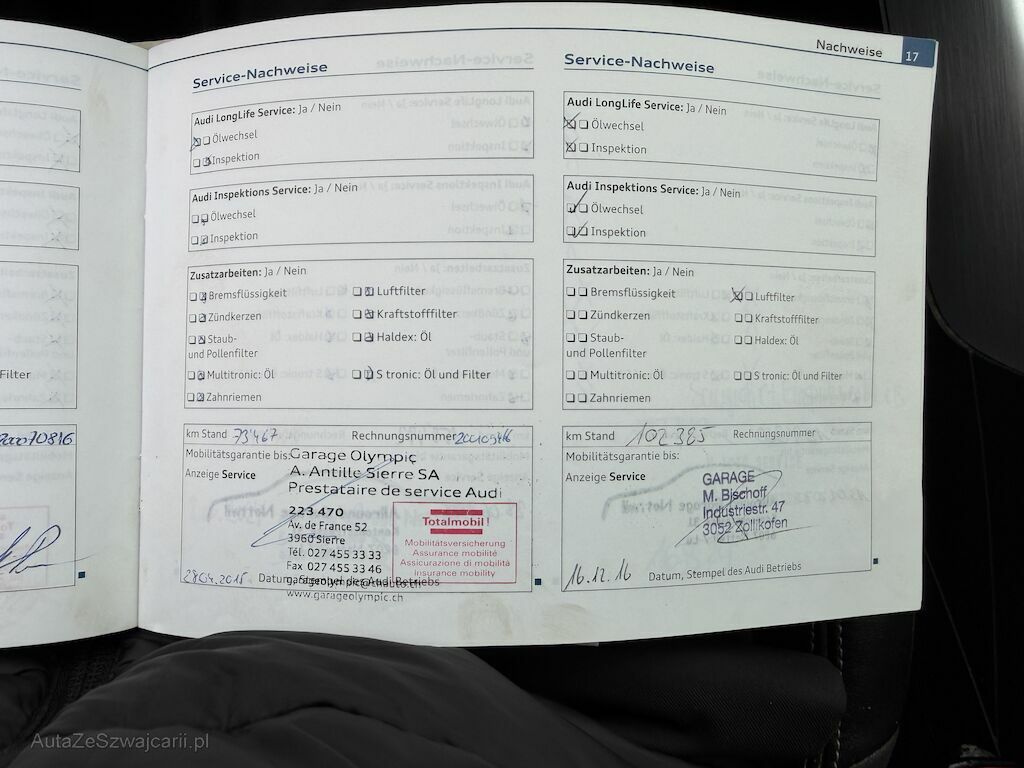 Nachweise 17
Filter
20070816
Service-Nachweise
Audi LongLife Service: Ja / Nein
Ölwechsel
Inspektion
Audi Inspektions Service: Ja / Nein
Ölwechsel
Inspektion
Zusatzarbeiten: Ja / Nein
Bremsflüssigkeit Luftfilter
Zündkerzen Kraftstofffilter
Staub- Haldex: Öl
und Pollenfilter
Multitronic: Öl S tronic: Öl und Filter
Zahnriemen
km Stand 73'467 Rechnungsnummer
Mobilitätsgarantie bis:
Anzeige Service
Garage Olympic
A. Antille Sierre SA
Prestataire de service Audi
223 470
Av. de France 52
3960 Sierre
Tél. 027 455 33 33
Fax 027 455 33 46
www.garageolympic.ch
Totalmobil!
Mobilitätsversicherung
Assurance mobilité
Assicurazione di mobilità
Insurance mobility
28.04.2015 Datum, Stempel des Audi Betriebs
Service-Nachweise
Audi LongLife Service: Ja / Nein
Ölwechsel
Inspektion
Audi Inspektions Service: Ja / Nein
Ölwechsel
Inspektion
Zusatzarbeiten: Ja / Nein
Bremsflüssigkeit Luftfilter
Zündkerzen Kraftstofffilter
Staub- Haldex: Öl
und Pollenfilter
Multitronic: Öl S tronic: Öl und Filter
Zahnriemen
km Stand 102 385 Rechnungsnummer
Mobilitätsgarantie bis:
Anzeige Service
GARAGE
M. Bischoff
Industriestr. 47
3052 Zollikofen
16.12.16 Datum, Stempel des Audi Betriebs
AutaZeSzwajcarii.pl